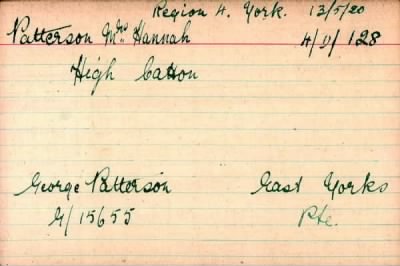 Region 4. York. 13/5/20
Patterson Mrs Hannah 4/D/128
High Catton
George Patterson East Yorks
G/15655 Pte.